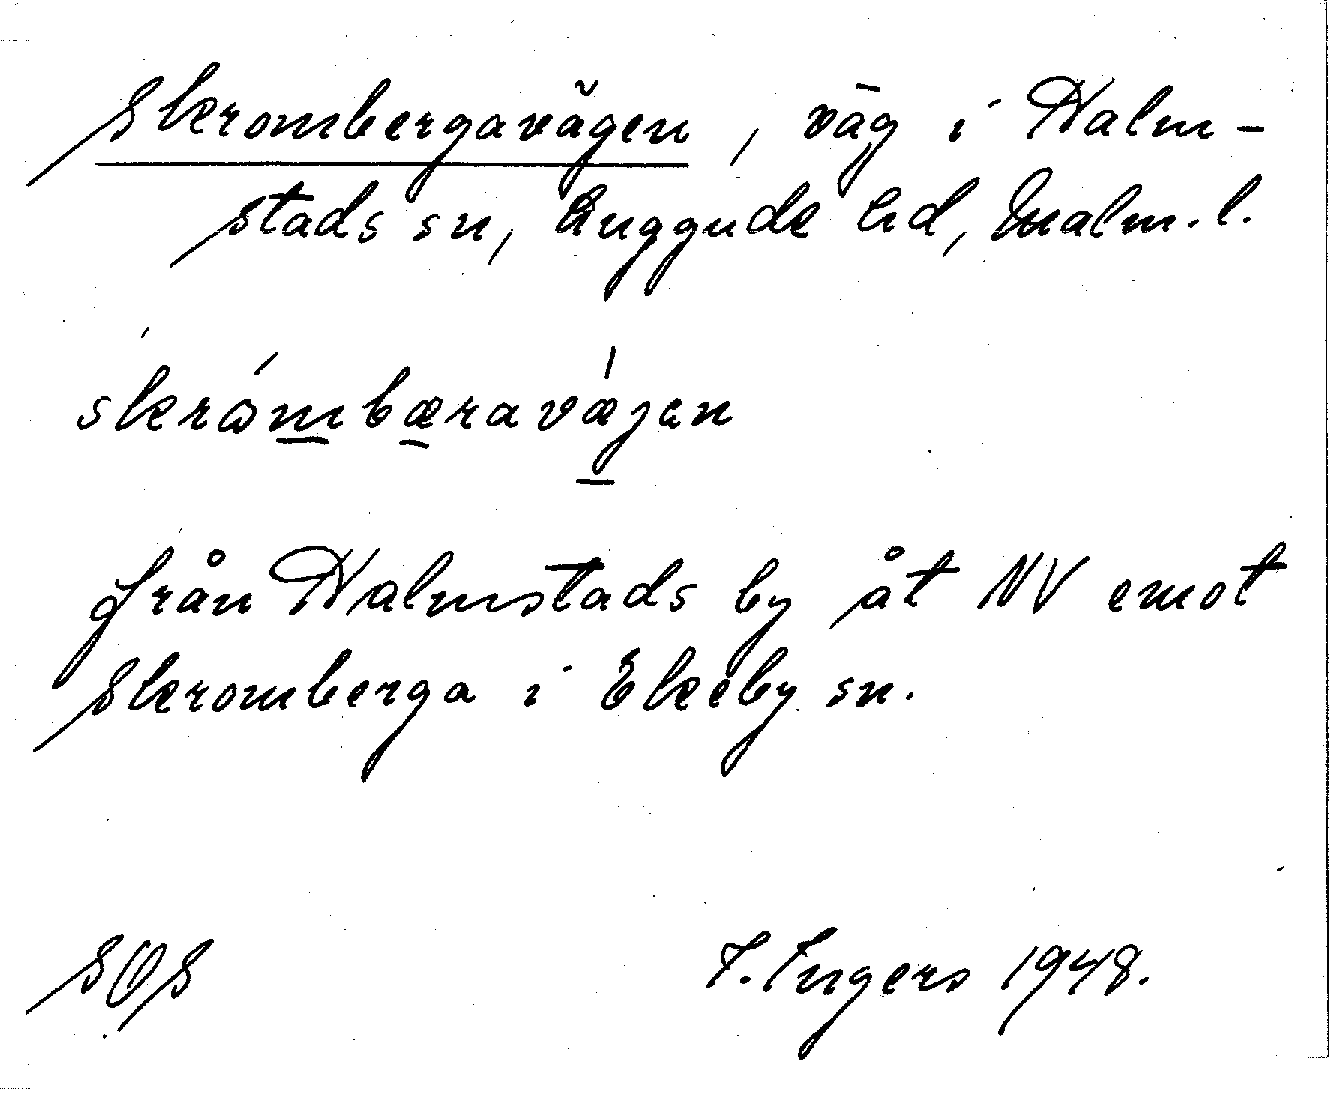 Skrombergavägen, väg i Halm-
stads sn, Luggude hd, Malm. l.
skrómbæravǽjen
från Halmstads by åt NV emot
Skromberga i Ekeby sn.
SOS I. Ingers 1948.